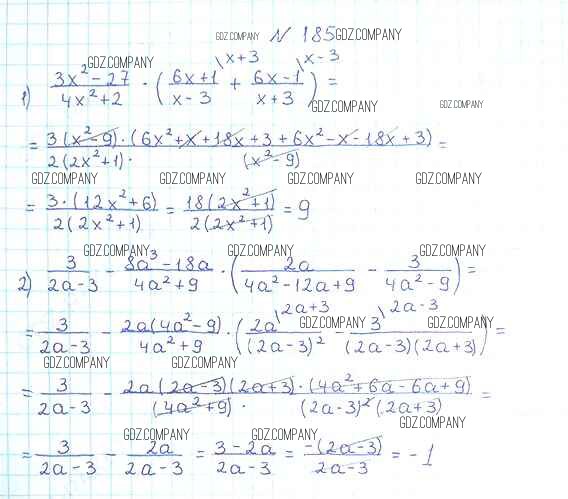 GDZ.COMPANY № 185 GDZ.COMPANY
1) (3x² - 27)/(4x² + 2) · ((6x+1)/(x-3) \x+3 + (6x-1)/(x+3) \x-3) =
GDZ.COMPANY GDZ.COMPANY GDZ.COMPANY
= (3(x²-9)·(6x²+x+18x+3+6x²-x-18x+3))/(2(2x²+1)·(x²-9)) =
GDZ.COMPANY GDZ.COMPANY GDZ.COMPANY GDZ.COMPANY
= (3·(12x²+6))/(2(2x²+1)) = (18(2x²+1))/(2(2x²+1)) = 9
GDZ.COMPANY GDZ.COMPANY GDZ.COMPANY
2) 3/(2a-3) - (8a³-18a)/(4a²+9) · (2a/(4a²-12a+9) - 3/(4a²-9)) =
= 3/(2a-3) - (2a(4a²-9))/(4a²+9) · (2a \2a+3/(2a-3)² - 3 \2a-3/((2a-3)(2a+3))) =
GDZ.COMPANY GDZ.COMPANY
GDZ.COMPANY GDZ.COMPANY
= 3/(2a-3) - (2a(2a-3)(2a+3)·(4a²+6a-6a+9))/((4a²+9)·(2a-3)²(2a+3)) =
GDZ.COMPANY GDZ.COMPANY GDZ.COMPANY
= 3/(2a-3) - 2a/(2a-3) = (3-2a)/(2a-3) = (-(2a-3))/(2a-3) = -1